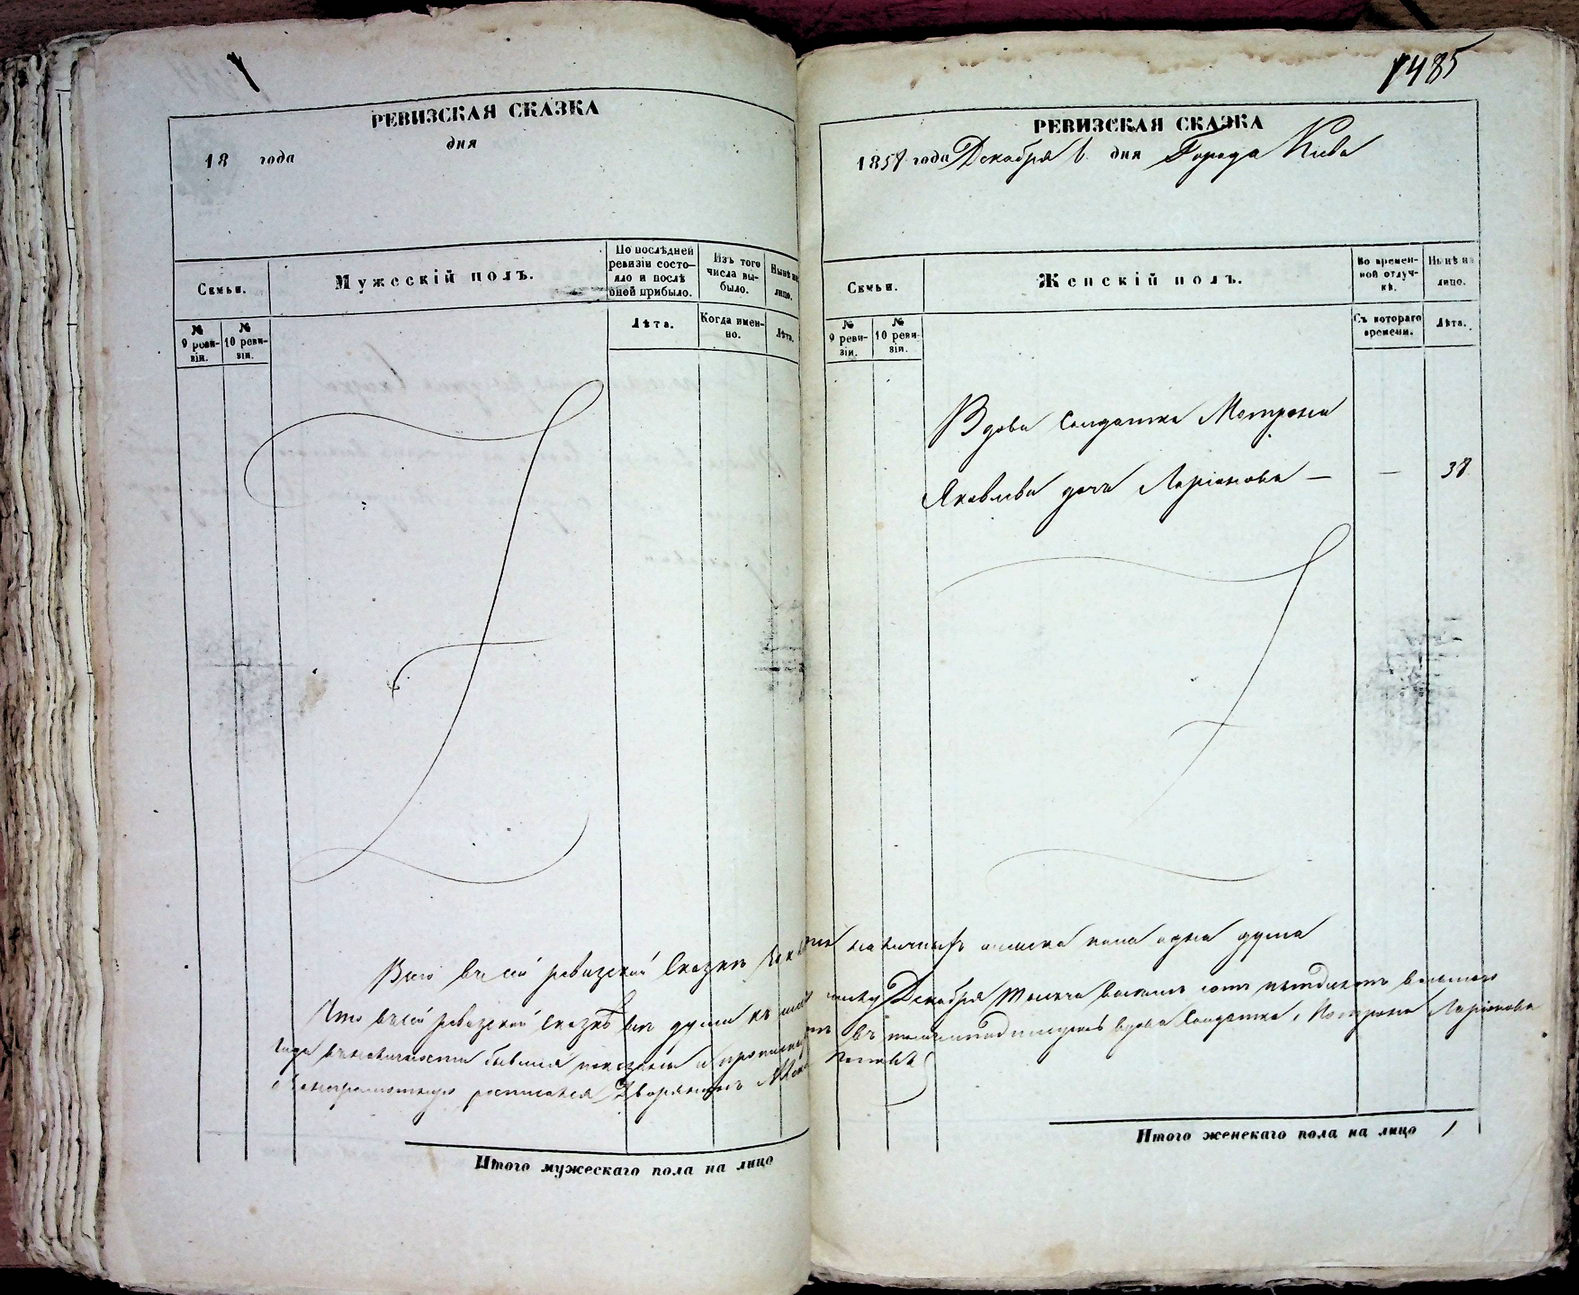 РЕВИЗСКАЯ СКАЗКА
18 года дня
Семьи.
Мужескій полъ.
По послѣдней ревизіи состояло и послѣ оной прибыло.
Изъ того числа выбыло.
Нынѣ на лицо.
№ 9 ревизіи.
№ 10 ревизіи.
Лѣта.
Когда именно.
Лѣта.
Всего въ сей ревизской сказкѣ
Что въ сей ревизской сказкѣ всѣ души къ
года въ наличности бывшія показаны и
Неграмотную росписался Дворянинъ
Итого мужескаго пола на лицо
1485
РЕВИЗСКАЯ СКАЗКА
1858 года Декабря дня Города Кіева
Семьи.
Женскій полъ.
Во временной отлучкѣ.
Нынѣ на лицо.
№ 9 ревизіи.
№ 10 ревизіи.
Съ котораго времени.
Лѣта.
Вдова Солдатка Матрона
Яковлева дочь Ларіонова — — 38
наличныхъ женска пола одна душа
Декабря тысяча восемь сотъ пятдесятъ восьмаго
въ томъ подписуюсь вдова Солдатка, Матрона Ларіонова
Итого женскаго пола на лицо 1